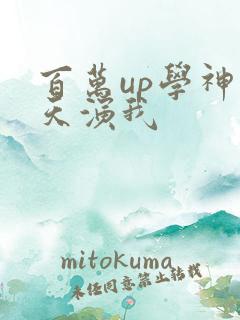 百萬up學神
天演我
mitokuma
未任同意禁止转载